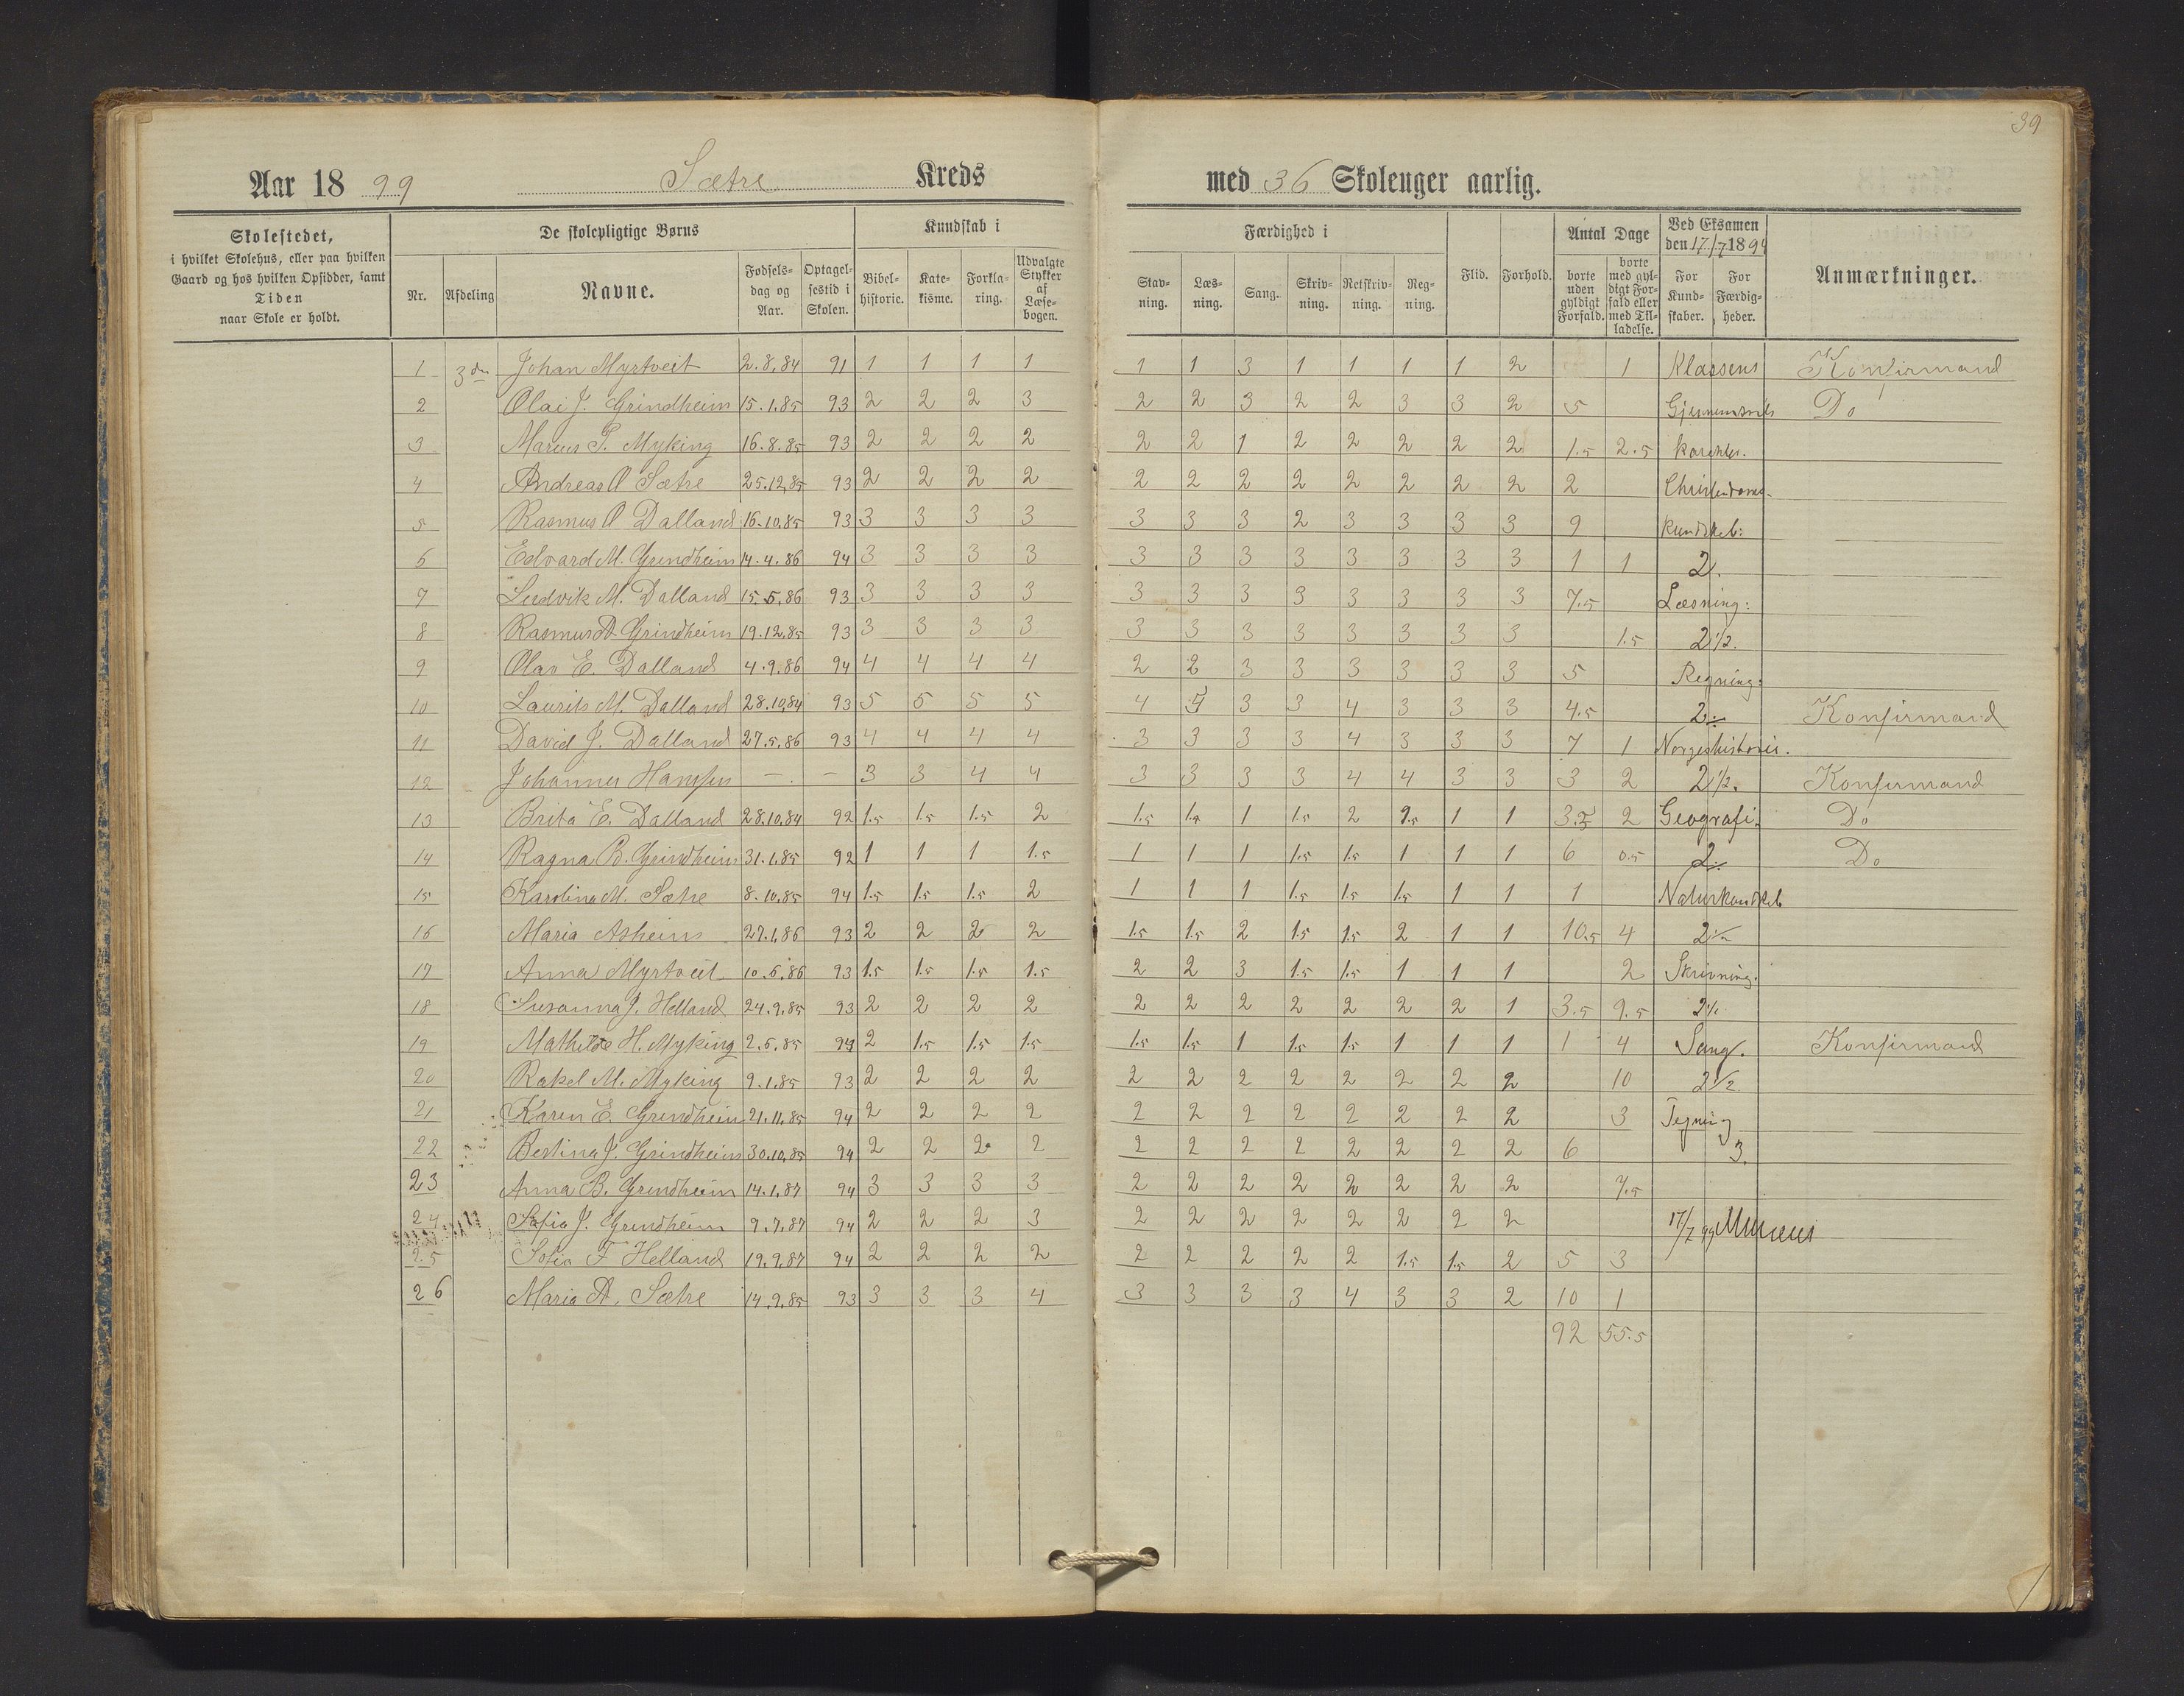 39
Aar 18 99 Sætre Kreds med 36 Skoleuger aarlig.
Skolestedet, i hvilket Skolehus, eller paa hvilken Gaard og hos hvilken Opsidder, samt Tiden naar Skole er holdt.
De skolepligtige Børns
Nr. Afdeling Navne. Fødselsdag og Aar. Optagelsestid i Skolen.
Kundskab i
Bibelhistorie. Katekisme. Forklaring. Udvalgte Stykker af Læsebogen.
Færdighed i
Stavning. Læsning. Sang. Skrivning. Retskrivning. Regning.
Flid. Forhold.
Antal Dage
borte uden gyldigt Forfald. borte med gyldigt Forfald eller med Tilladelse.
Ved Eksamen den 17./7 1899
For Kundskaber. For Færdigheder.
Anmærkninger.
1 3die Johan Myrtveit 2.8.84 91 1 1 1 1 1 1 3 1 1 1 1 2 1 Klassens Konfirmand
2 Olai J. Grindheim 15.1.85 93 2 2 2 3 2 2 3 2 2 3 3 2 5 Gjennemsnits Do
3 Marcus T. Myking 16.8.85 93 2 2 2 2 2 2 1 2 2 2 2 2 1.5 2.5 karakter.
4 Andreas O Sætre 25.12.85 93 2 2 2 2 2 2 2 2 2 2 2 2 2 Christendoms-
5 Rasmus O Dalland 16.10.85 93 3 3 3 3 3 3 3 2 3 3 3 3 9 kundskab:
6 Edvard M. Grindheim 14.4.86 94 3 3 3 3 3 3 3 3 3 3 3 3 1 1 2.
7 Ludvik M. Dalland 15.5.86 93 3 3 3 3 3 3 3 3 3 3 3 3 7.5 Læsning:
8 Rasmus A. Grindheim 19.12.85 93 3 3 3 3 3 3 3 3 3 3 3 3 1.5 2 1/2.
9 Olav E. Dalland 4.9.86 94 4 4 4 4 2 2 3 3 3 3 3 3 5 Regning:
10 Laurits M. Dalland 28.10.84 93 5 5 5 5 4 4 3 3 4 3 3 3 4.5 2 Konfirmand
11 David J. Dalland 27.5.86 93 4 4 4 4 3 3 3 3 4 3 3 3 7 1 Norgeshistorie.
12 Johannes Hansen — — 3 3 4 4 3 3 3 3 4 4 3 3 3 2 2 1/2. Konfirmand
13 Brita E. Dalland 28.10.84 92 1.5 1.5 1.5 2 1.5 1.5 1 1.5 2 1.5 1 1 3.5 2 Geografi: Do
14 Ragna B. Grindheim 31.1.85 92 1 1 1 1.5 1 1 1 1.5 1.5 1 1 1 6 0.5 2 Do
15 Karolina M. Sætre 8.10.85 94 1.5 1.5 1.5 2 1 1 1 1.5 1.5 1.5 1 1 1 Naturkundskab
16 Maria Asheim 27.1.86 93 2 2 2 2 1.5 1.5 2 1.5 1.5 2 1 1 10.5 4 2 1/2
17 Anna Myrtveit 10.6.86 93 1.5 1.5 1.5 1.5 2 2 3 1.5 1.5 1 1 1 2 Skrivning.
18 Susanna J. Helland 24.9.85 93 2 2 2 2 2 2 2 2 2 2 2 1 3.5 9.5 2 1/2
19 Mathilde H. Myking 2.6.85 94 2 1.5 1.5 1.5 1.5 1.5 1 1.5 1.5 1 1 1 1 4 Sang. Konfirmand
20 Rakel M. Myking 9.1.85 93 2 2 2 2 2 2 2 2 2 2 2 2 10 2 1/2
21 Karen E. Grindheim 21.11.85 94 2 2 2 2 2 2 2 2 2 2 2 2 3 Tegning
22 Bertina J. Grindheim 30.10.85 94 2 2 2 2 2 2 2 2 2 2 2 2 6 3.
23 Anna B. Grindheim 14.1.87 94 3 3 3 3 2 2 2 2 2 2 2 2 7.5
24 Sofia J. Grindheim 9.7.87 94 2 2 2 3 2 2 2 2 2 2 2 2 17/7 99
25 Sofia F Helland 19.9.87 94 2 2 2 2 2 2 2 2 2 1.5 1.5 2 5 3
26 Maria A. Sætre 14.9.85 93 3 3 3 4 3 3 3 3 4 3 3 2 10 1
92 55.5